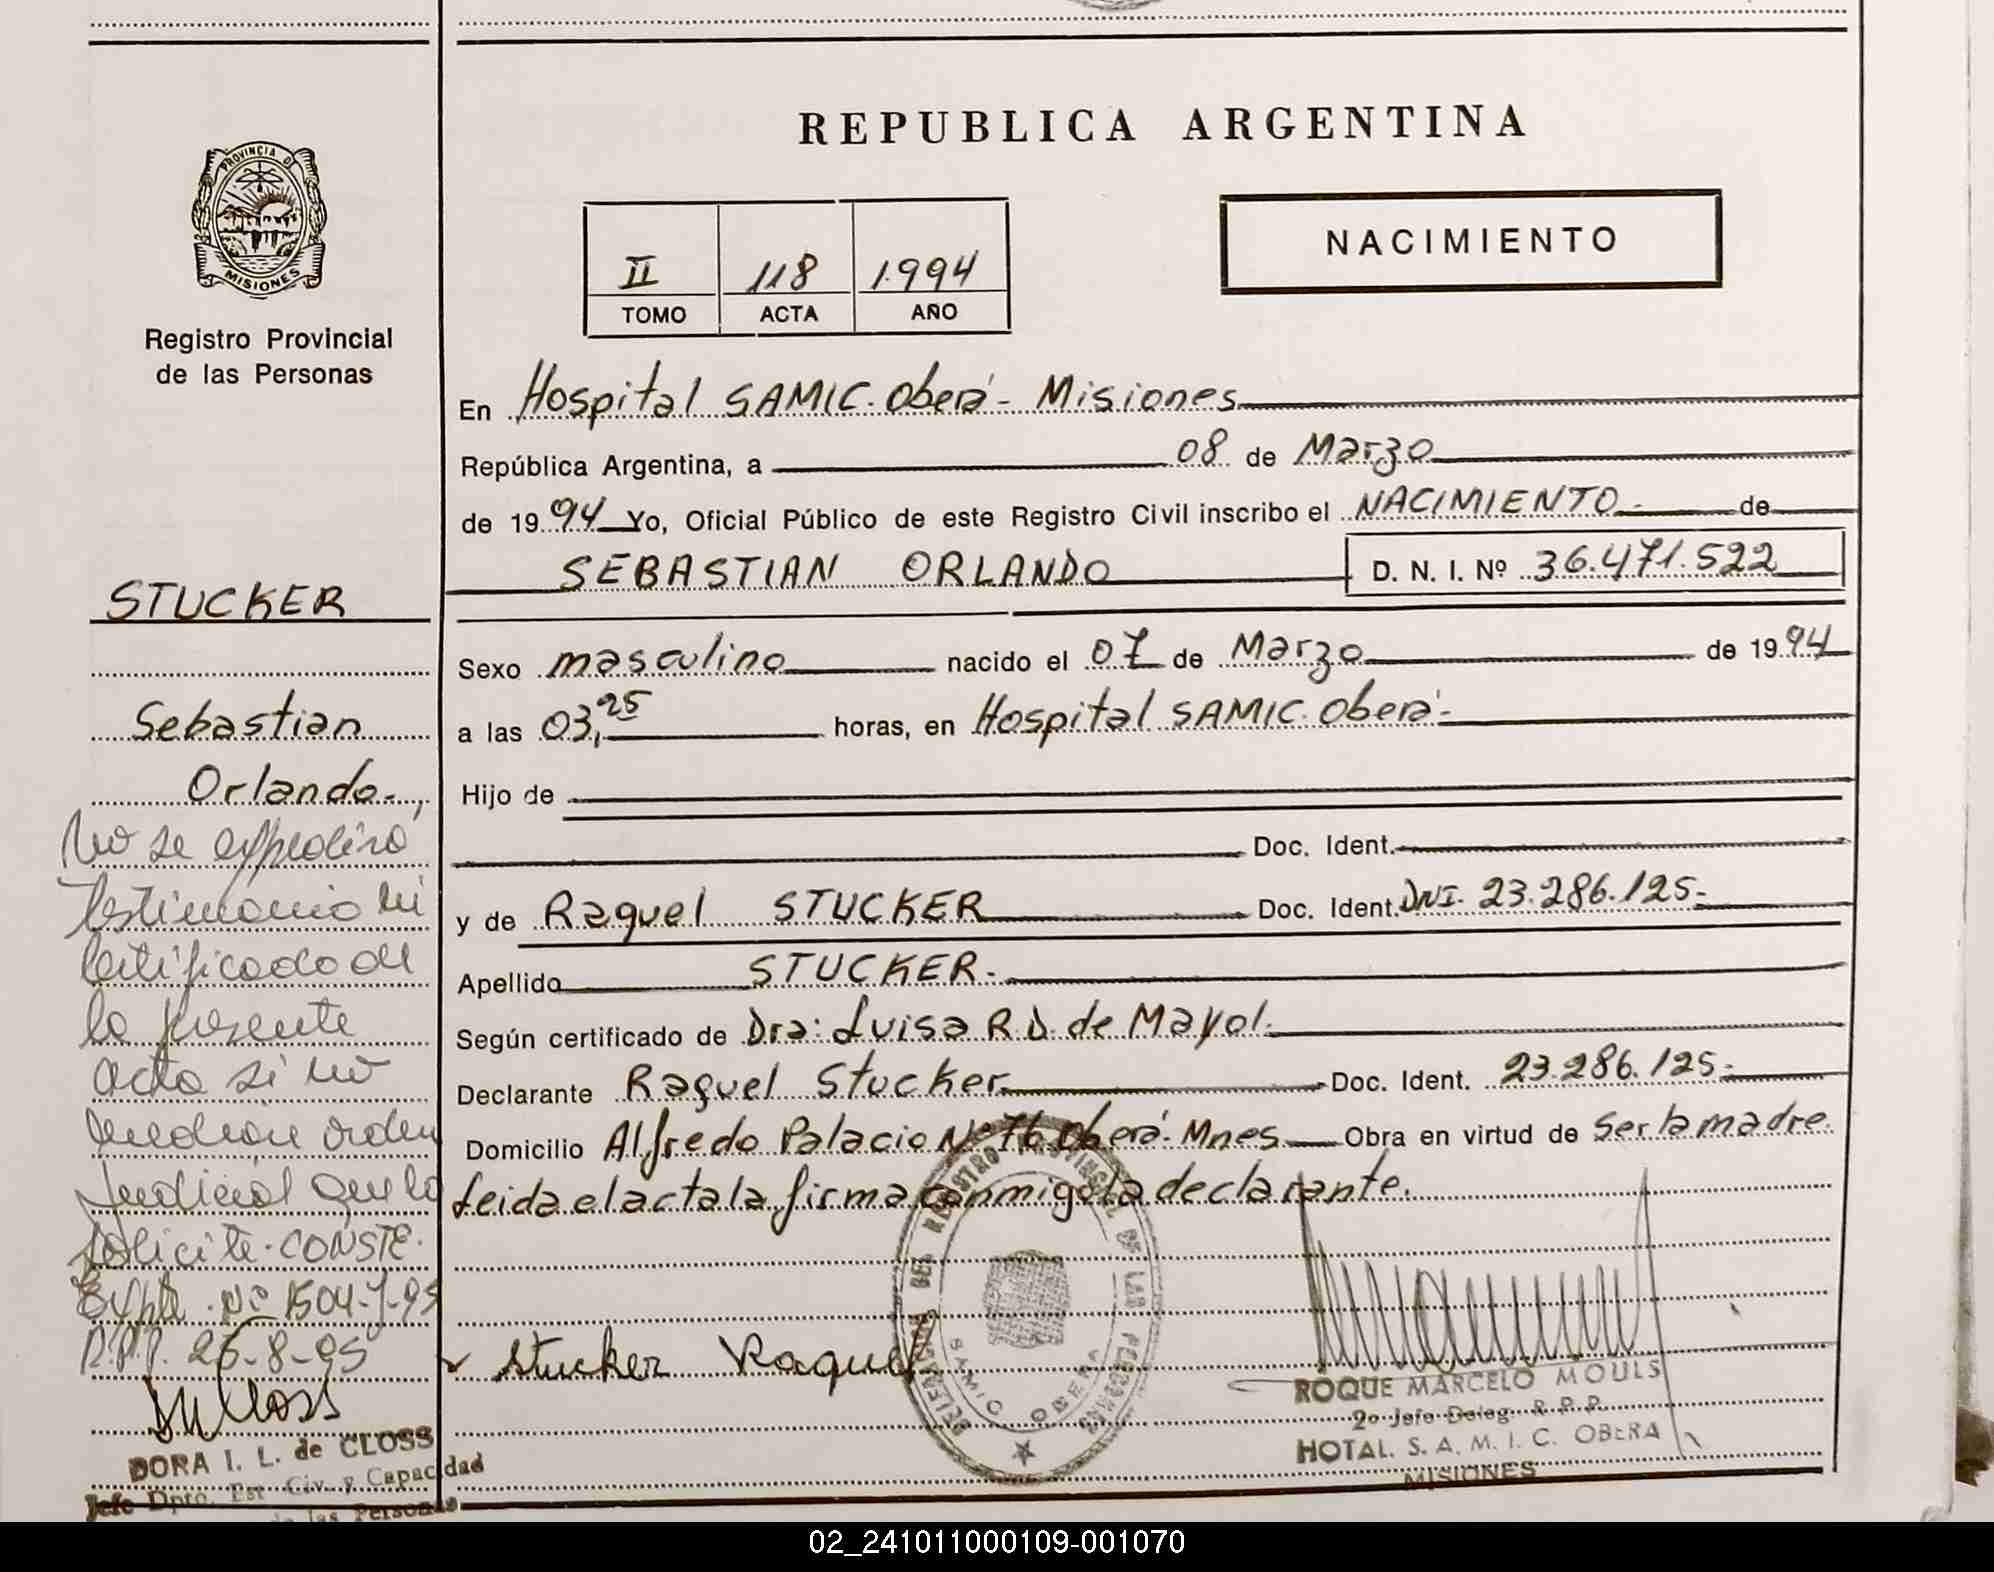 REPUBLICA ARGENTINA
PROVINCIA DE
MISIONES
Registro Provincial
de las Personas
II 118 1.994
TOMO ACTA AÑO
NACIMIENTO
En Hospital SAMIC. Oberá - Misiones
República Argentina, a 08 de Marzo
de 1994 Yo, Oficial Público de este Registro Civil inscribo el NACIMIENTO.- de
SEBASTIAN ORLANDO D. N. I. Nº 36.471.522
Sexo masculino nacido el 07 de Marzo de 1994
a las 03,25 horas, en Hospital SAMIC. Oberá.-
Hijo de
Doc. Ident.
y de Raquel STUCKER Doc. Ident. DNI. 23.286.125.-
Apellido STUCKER.-
Según certificado de Dra: Luisa R D. de Mayol.
Declarante Raquel Stucker Doc. Ident. 23.286.125.-
Domicilio Alfredo Palacio Nº 76 Oberá. Mnes Obra en virtud de Ser la madre.
Leida el acta la firma conmigo la declarante.
Stucker Raquel
REGISTRO PROVINCIAL DE LAS PERSONAS
SAMIC OBERA
ROQUE MARCELO MOULS
2º Jefe Deleg. R. P. P.
HOTAL. S. A. M. I. C. OBERA
MISIONES
STUCKER
Sebastian
Orlando.-,
No se expedira
testimonio ni
certificado de
la presente
acta si no
mediare orden
Judicial que lo
solicite. CONSTE.
Expte. Nº 1504-J-95
R.P.P. 26-8-95
DORA I. L. de CLOSS
Jefe Dpto. Est Civ. y Capacidad
de las Personas
02_241011000109-001070